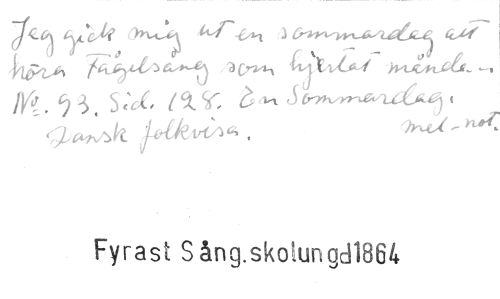 Jeg gick mig ut en sommardag att
höra Fågelsång som hjertat månda...
No. 93. Sid. 128. En Sommardag.
Dansk folkvisa. mel-not.
Fyrast Sång.skolungd1864